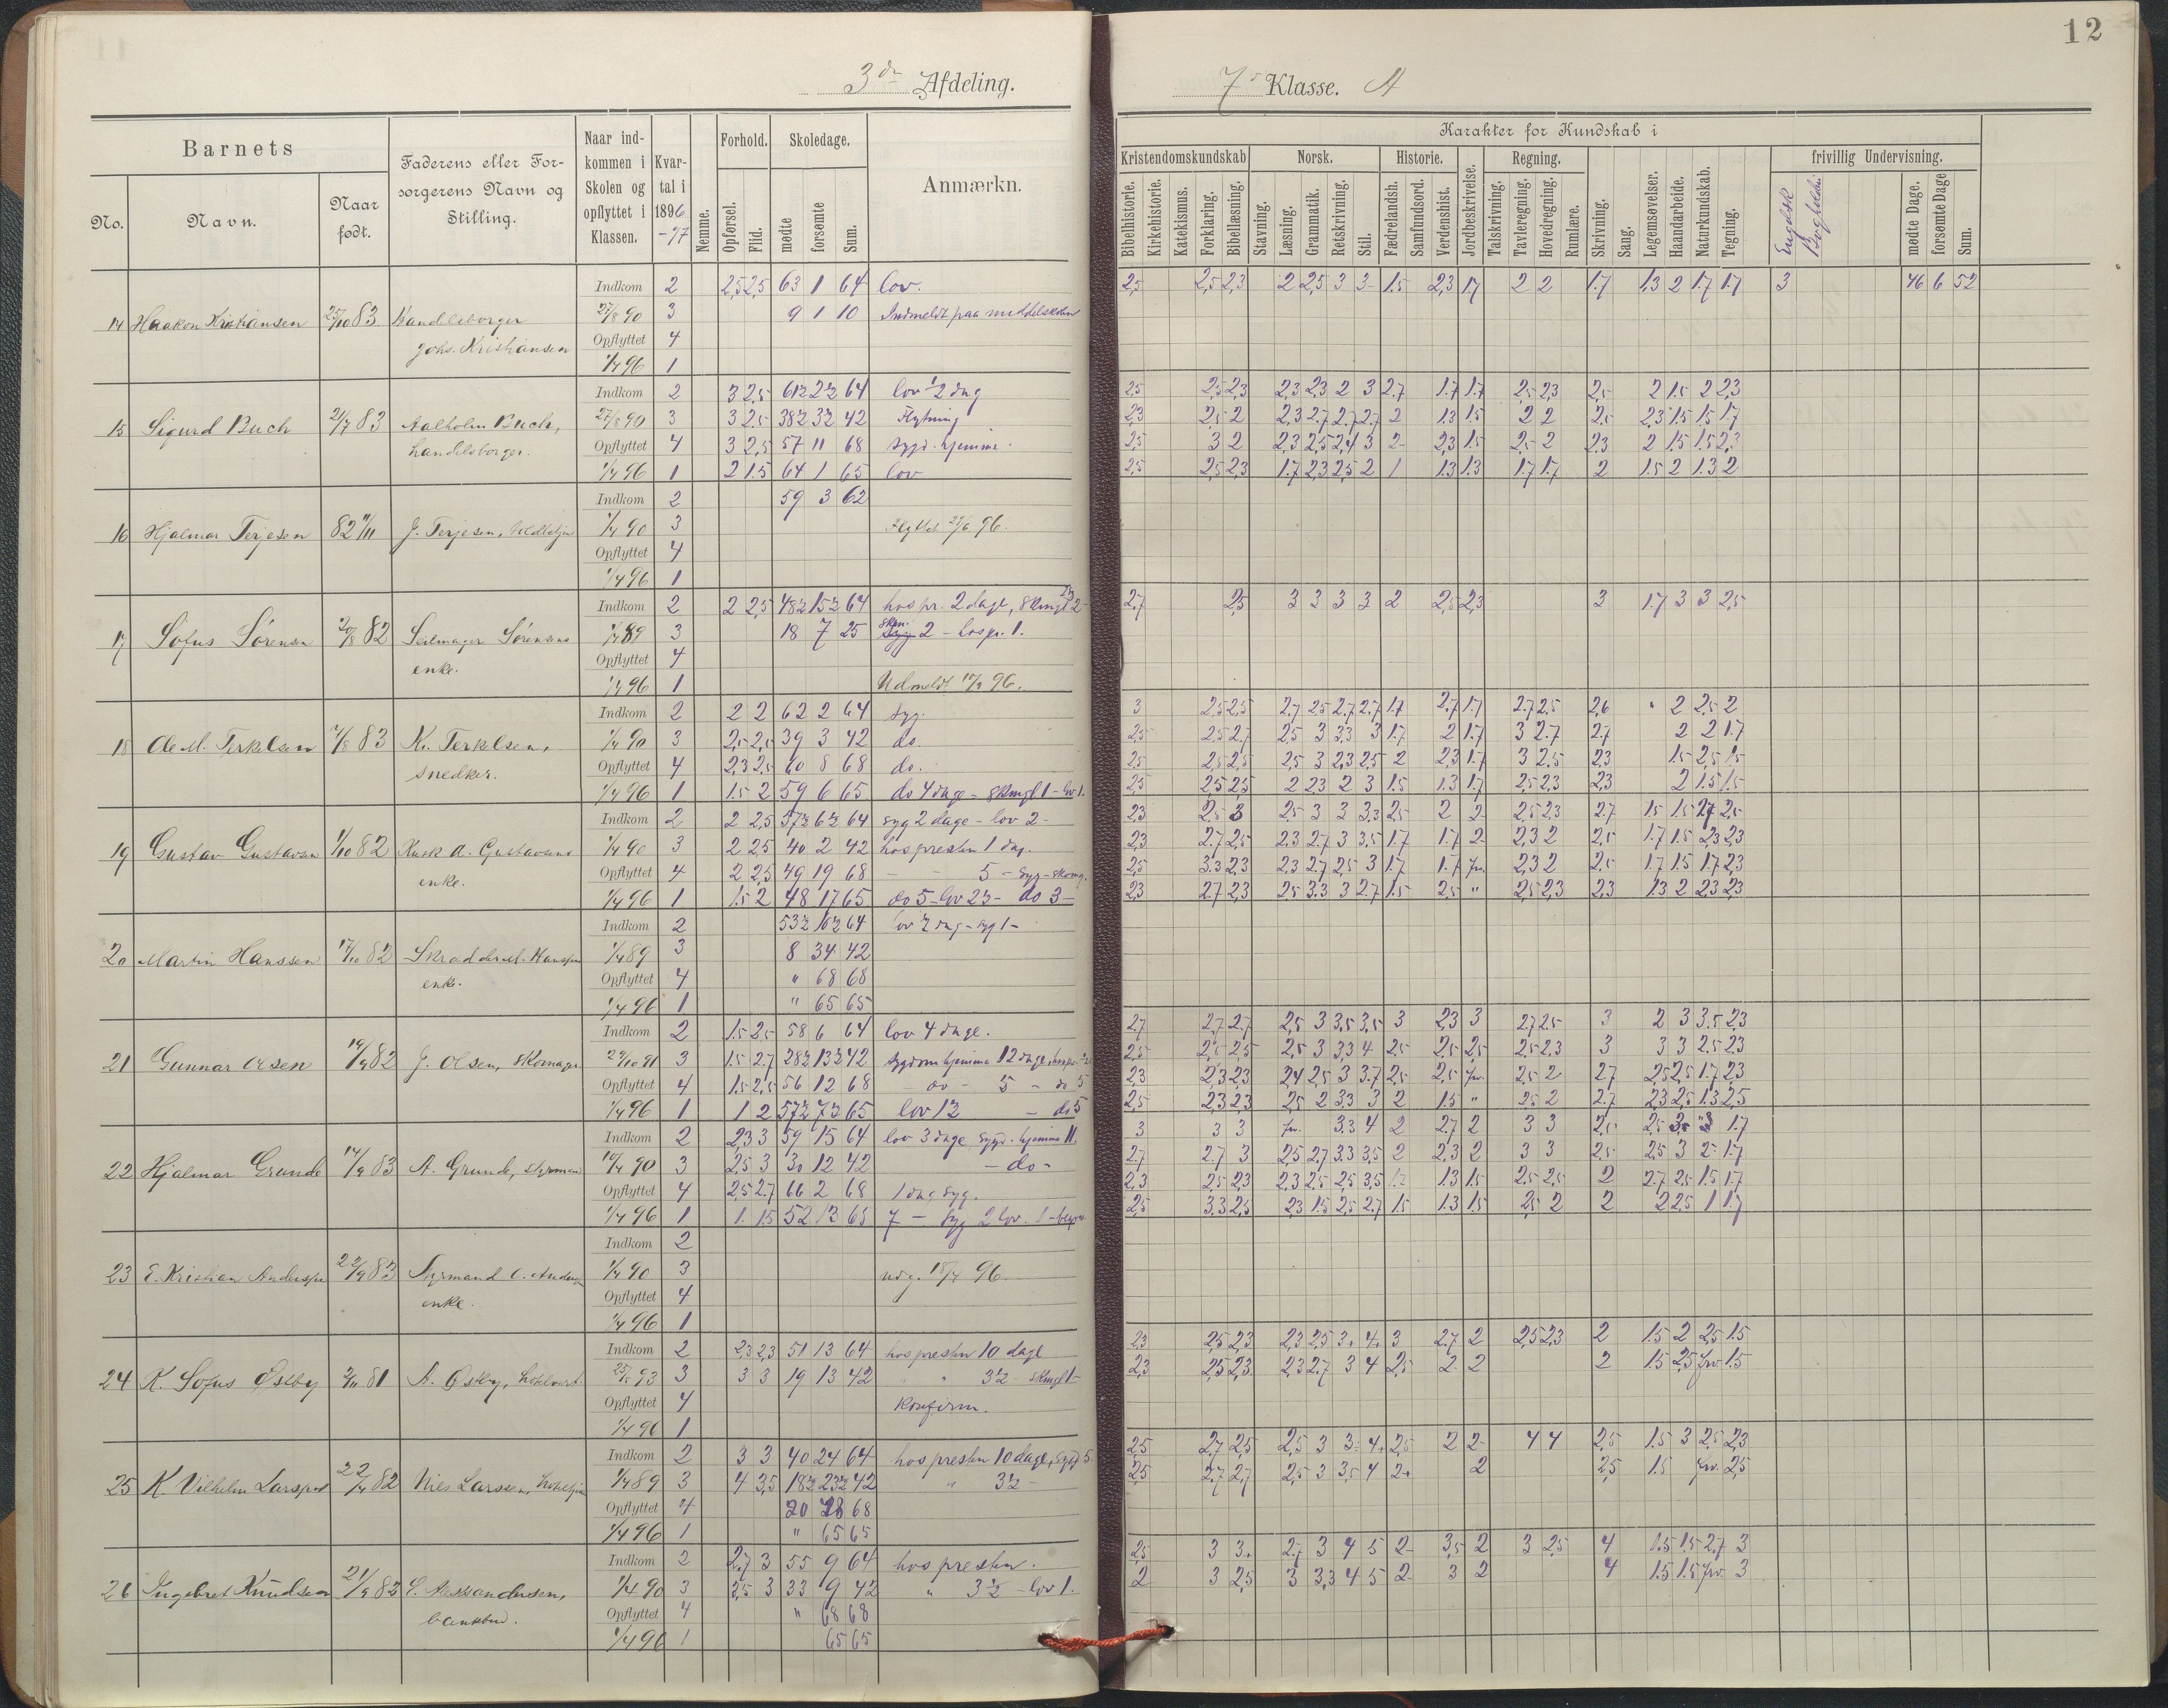 12
3die Afdeling.
7s Klasse. A
Barnets
Faderens eller Forsorgerens Navn og Stilling.
Naar indkommen i Skolen og opflyttet i Klassen.
Kvartal i 1896-97
Nemme.
Forhold.
Skoledage.
Anmærkn.
No.
Navn.
Naar født.
Opførsel.
Flid.
mødte
forsømte
Sum.
Karakter for Kundskab i
Kristendomskundskab
Norsk.
Historie.
Jordbeskrivelse.
Regning.
frivillig Undervisning.
Bibelhistorie.
Kirkehistorie.
Katekismus.
Forklaring.
Bibellæsning.
Stavning.
Læsning.
Grammatik.
Retskrivning.
Stil.
Fædrelandsh.
Samfundsord.
Verdenshist.
Talskrivning.
Tavleregning.
Hovedregning.
Rumlære.
Skrivning.
Sang.
Legemsøvelser.
Haandarbeide.
Naturkundskab.
Tegning.
Engelsk
Bogholderi
mødte Dage.
forsømte Dage
Sum.
Indkom 2 2,5 2,5 63 1 64 lov. 2,5 2,5 2,3 2 2,5 3 3 1.5 2,3 1.7 2 2 1.7 1,3 2 1.7 1.7 3 46 6 52
14 Haakon Kristiansen 25/10 83 Handelsborger 27/8 90 3 9 1 10 Indmeldt paa middelskolen
Johs. Kristiansen Opflyttet 4
1/4 96 1
Indkom 2 3 2,5 61½ 2½ 64 lov ½ dag 2,5 2,5 2,3 2,3 2,3 2 3 2.7 1.7 1.7 2,5 2,3 2,5 2 1.5 2 2,3
15 Sigurd Buch 2/7 83 Aalholm Buch, 27/8 90 3 3 2.5 38½ 3½ 42 Flytning 2,3 2,5 2 2,3 2.7 2.7 2.7 2 1.3 1.5 2 2 2,5 2,3 1.5 1.5 1.7
handelsborger. Opflyttet 4 3 2,5 57 11 68 sygd. hjemme. 2,5 3 2 2,3 2,5 2,4 3 2 2,3 1.5 2,5 2 2.3 2 1.5 1.5 2,3
1/4 96 1 2 1.5 64 1 65 lov 2,5 2,5 2,3 1.7 2,3 2,5 2 1 1.3 1.3 1.7 1.7 2 1.5 2 1.3 2
Indkom 2 59 3 62
16 Hjalmar Terjesen 82 11/11 J. Terjesen, 1/4 90 3 96.
Opflyttet 4
1/4 96 1
Indkom 2 2 2,5 48½ 15½ 64 hos pr. 2 dage, 2,7 2,5 3 3 3 3 2 2,5 2,3 3 1.7 3 3 2,5
17 Sofus Sørensen 20/8 82 Seilmager Sørensens 1/4 89 3 18 7 25 2 - hos pr. 1.
enke. Opflyttet 4
1/4 96 1 Udmeldt 96.
Indkom 2 2 2 62 2 64 syg. 3 2,5 2,5 2,7 2,5 2.7 2.7 1.7 2.7 1.7 2.7 2.5 2,6 " 2 2,5 2
18 Ole M. Terkelsen 7/8 83 K. Terkelsen, 1/4 90 3 2,5 2,5 39 3 42 do. 2,5 2,5 2.7 2,5 3 3.3 3 1.7 2 1.7 3 2.7 2.7 2 2 1.7
snedker. Opflyttet 4 2,3 2,5 60 8 68 do. 2,5 2,5 2,5 2,5 3 2,3 2,5 2 2,3 1.7 3 2,5 2,3 1.5 2,5 1.5
1/4 96 1 1.5 2 59 6 65 do 4 dage - 1 - lov 1. 2,5 2,5 2,5 2 2,3 2 3 1.5 1.3 1.7 2,5 2,3 2,3 2 1.5 1.5
Indkom 2 2 2,5 57½ 6½ 64 syg 2 dage - lov 2 - 2,3 2,5 3 2,5 3 3 3,3 2,5 2 2 2,5 2,3 2.7 1.5 1.5 2.7 2,5
19 Gustav Gustavsen 1/10 82 Kusk A. Gustavsens 1/4 90 3 2 2,5 40 2 42 hos presten 1 dag. 2,3 2.7 2,5 2,3 2.7 3 3.5 1.7 1.7 2 2,3 2 2,5 1.7 1.5 2,3 2,3
enke. Opflyttet 4 2 2,5 49 19 68 - - 5 - syg - 2,5 3.3 2,3 2,3 2.7 2,5 3 1.7 1.7 2,3 2 2,5 1.7 1.5 1.7 2,3
1/4 96 1 1.5 2 48 17 65 do 5 - lov 2½ - do 3 - 2,3 2.7 2,3 2,5 3.3 3 2.7 1.5 2,5 " 2,5 2,3 2,3 1.3 2 2,3 2,3
Indkom 2 53½ 10½ 64 lov ½ dag - syg 1 -
20 Martin Hanssen 17/10 82 Skrædder M. Hanssen 1/4 89 3 8 34 42
enke. Opflyttet 4 " 68 68
1/4 96 1 " 65 65
Indkom 2 1.5 2,5 58 6 64 lov 4 dage. 2.7 2.7 2.7 2,5 3 3,5 3,5 3 2,3 3 2.7 2.5 3 2 3 3.5 2,3
21 Gunnar Olsen 19/9 82 J. Olsen, skomager 29/10 91 3 1.5 2.7 28½ 13½ 42 sygdom hjemme 12 dage, 2,5 2,5 2,5 2,5 3 3,3 4 2,5 2,5 2,5 2,5 2,3 3 3 3 2.5 2,3
Opflyttet 4 1.5 2,5 56 12 68 - do - 5 - do 5 2,3 2,3 2,3 2,4 2,5 3 3.7 2,5 2,5 2,5 2 2.7 2,5 2,5 1.7 2,3
1/4 96 1 1 2 57½ 7½ 65 lov 1½ - do 5 2,5 2,3 2,3 2,5 2 3.3 3 2 1.5 " 2,5 2 2.7 2,3 2,5 1.3 2,5
Indkom 2 2,3 3 59 15 64 lov 3 dage, sygd. hjemme 11. 3 3 3 3.3 4 2 2.7 2 3 3 2,5 2,5 3 1.7
22 Hjalmar Grunde 14/9 83 A. Grunde, styrmand 19/4 90 3 2,5 3 30 12 42 - do - 2.7 2.7 3 2,5 2.7 3.3 3.5 2 2.3 2 3 3 2,5 2,5 3 2 1.7
Opflyttet 4 2,5 2.7 66 2 68 1 dag syg. 2,3 2,5 2,3 2,3 2,5 2,5 3,5 1.3 1.5 2,5 2,5 2 2.7 2,5 1.5 1.7
1/4 96 1 1. 1.5 52 13 65 7 - syg 2 lov. 1 - 2,5 3.3 2,5 2,3 1.5 2,5 2.7 1.5 1.3 1.5 2,5 2 2 2 2,5 1 1.7
Indkom 2
23 E. Kristian Anderssen 22/9 83 Styrmand C. Anderssen 1/4 90 3 udg. 18/4 96.
enke. Opflyttet 4
1/4 96 1
Indkom 2 2,3 2,3 51 13 64 hos presten 10 dage 2,3 2,5 2,3 2,3 2,5 3+ 4+ 3 2.7 2 2,5 2,3 2 1.5 2 2,5 1.5
24 K. Sofus Østby 2/11 81 A. Østby, 25/5 93 3 3 3 19 13 42 " " 3½ 2,3 2,5 2,3 2,3 2.7 3 4 2,5 2 2 2 1.5 2,5 frv. 1.5
Opflyttet 4 Konfirm.
1/4 96 1
Indkom 2 3 3 40 24 64 hos presten 10 dage, sygd 5. 2,5 2,7 2,5 2,5 3 3 4 2,5 2 2 4 4 2,5 1.5 3 2,5 2,3
25 K Vilhelm Larssen 22/4 82 Niels Larssen, 1/4 89 3 4 3,5 18½ 23½ 42 " 3½ - 2,5 2.7 2,7 2,5 3 3.5 4 2+ 2 2,5 1.5 frv. 2,5
Opflyttet 4 20 48 68
1/4 96 1 " 65 65
Indkom 2 2,7 3 55 9 64 hos presten. 2,5 3 3+ 2.7 3 4 5 2 3,5 2 3 2,5 4 1.5 1.5 2,7 3
26 Ingebret Knudsen 21/9 82 1/4 90 3 2,5 3 33 9 42 " 3½ - lov 1. 2 3 2,5 3 3,3 4 5 2 3 2 4 1.5 1.5 frv. 3
bankbud. Opflyttet 4 " 68 68
1/4 96 1 65 65